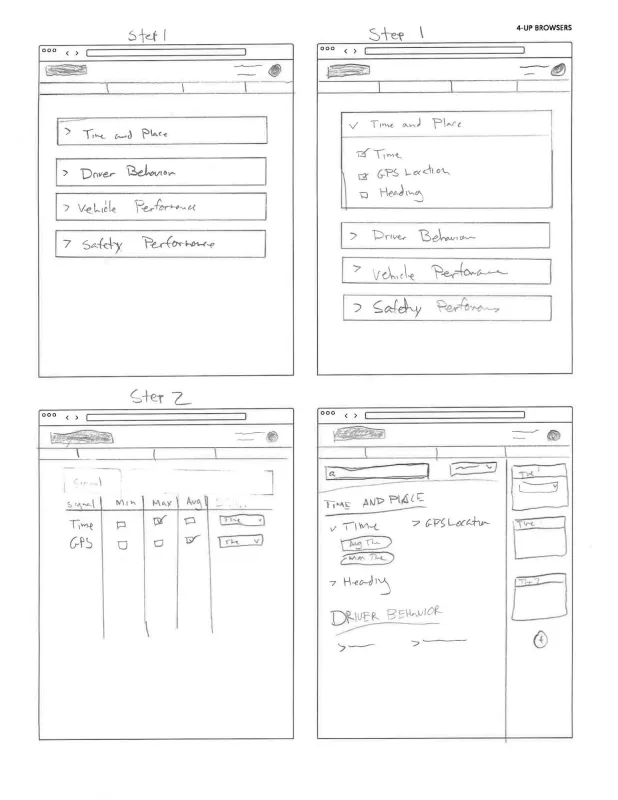 4-UP BROWSERS
Step 1
> Time and Place
> Driver Behavior
> Vehicle Performance
> Safety Performance
Step 1
v Time and Place
Time
GPS Location
Heading
> Driver Behavior
> Vehicle Performance
> Safety Performance
Step 2
Signal
Signal Min Max Avg
Time Time v
GPS v
TIME AND PLACE
v TIME > GPS Location
Avg
> Heading
DRIVER BEHAVIOR